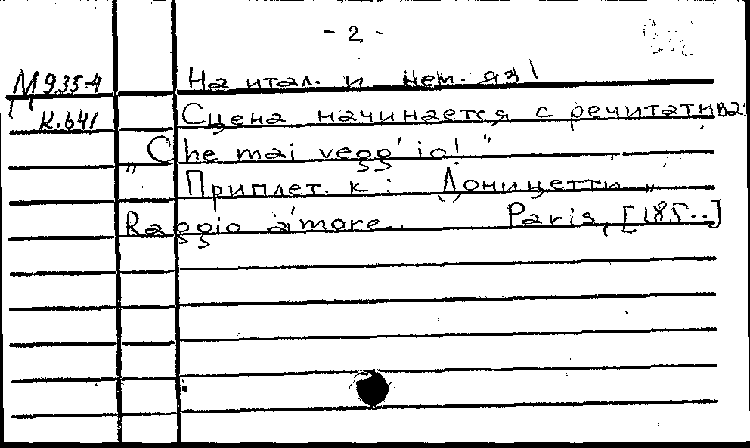 - 2 -
М 935-4 На итал. и нем. яз!
К.641 Сцена начинается с речитатива:
„Che mai vegg' io!"
Приплет. к: Доницетти „
Raggio d'amore.. Paris, [185..]